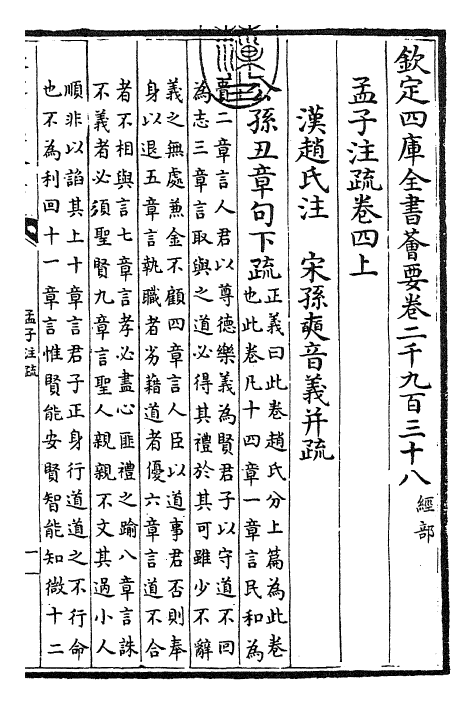 欽定四庫全書薈要卷二千九百三十八 經部
孟子注疏卷四上
漢趙氏注 宋孫奭音義并疏
公孫丑章句下疏
正義曰此卷趙氏分上篇為此卷
也此卷凡十四章一章言民和為
貴二章言人君以尊德樂義為賢君子以守道不回
為志三章言取與之道必得其禮於其可雖少不辭
義之無處兼金不顧四章言人臣以道事君否則奉
身以退五章言執職者劣藉道者優六章言道不合
者不相與言七章言孝必盡心匪禮之踰八章言誅
不義者必須聖賢九章言聖人親親不文其過小人
順非以諂其上十章言君子正身行道道之不行命
也不為利回十一章言惟賢能安賢智能知微十二
孟子注疏
一